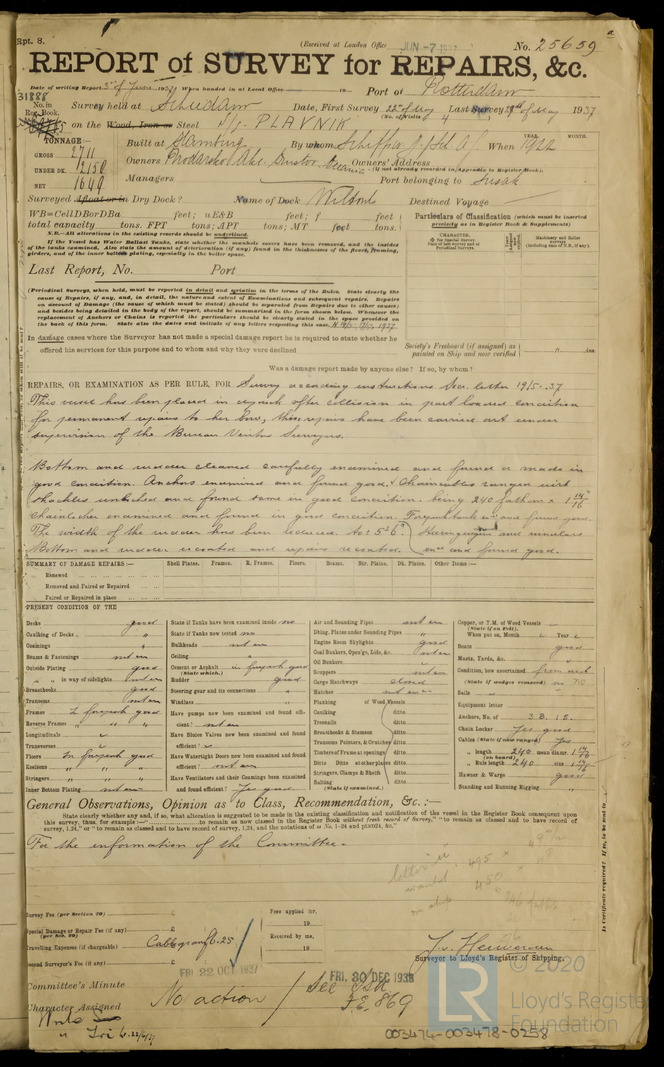 Rpt. 8.
(Received at London Office JUN -7 1937
No. 25659
REPORT of SURVEY for REPAIRS, &c.
Date of writing Report 3rd of June 1937 When handed in at Local Office 19 Port of Rotterdam
31888
No. in Reg. Book.
Survey held at Schiedam Date, First Survey 22nd May Last Survey of May 1937
(No. of Visits 4
on the Wood, Iron or Steel S/S. PLAVNIK
TONNAGE:—
GROSS 2711
UNDER DK. 2150
NET 1649
Built at Hamburg By whom When 1922
YEAR. MONTH.
Owners Owners' Address
(if not already recorded in Appendix to Register Book).
Managers Port belonging to Susak
Surveyed afloat or in Dry Dock? Name of Dock Wiltons Destined Voyage
WB=CellDBorDBa feet; uE&B feet; f feet
total capacity tons. FPT tons; APT tons; MT feet tons.
N.B.—All alterations in the existing records should be underlined.
If the Vessel has Water Ballast Tanks, state whether the manhole covers have been removed, and the insides
of the tanks examined. Also state the amount of deterioration (if any) found in the thicknesses of the floors, framing,
girders, and of the inner bottom plating, especially in the boiler space.
Particulars of Classification (which must be inserted
precisely as in Register Book & Supplements)
CHARACTER.
Machinery and Boiler Surveys
(including date of N.B., if any).
Last Report, No. Port
(Periodical Surveys, when held, must be reported in detail and seriatim in the terms of the Rules. State clearly the
cause of Repairs, if any, and, in detail, the nature and extent of Examinations and subsequent repairs. Repairs
on account of Damage (the cause of which must be stated) should be separated from Repairs due to other causes;
and besides being detailed in the body of the report, should be summarised in the form shown below. Whenever the
replacement of Anchors or Chains is reported the particulars should be clearly stated in the space provided on
the back of this form. State also the dates and initials of any letters respecting this case. 1937
In damage cases where the Surveyor has not made a special damage report he is required to state whether he
offered his services for this purpose and to whom and why they were declined
Society's Freeboard (if assigned) as
painted on Ship and now verified
Was a damage report made by anyone else? If so, by whom?
REPAIRS, OR EXAMINATION AS PER RULE, FOR Survey according instructions Sec. letter 19/5-37
This vessel has been placed in drydock after collision in part loaded condition
for permanent repairs to her bow, these repairs have been carried out under
supervision of the Bureau Veritas Surveyors.
Bottom and rudder cleaned carefully examined and found or made in
good condition. Anchors examined and found good. Chaincables ranged with
shackles unlocked and found same in good condition being 240 fathom x 1 14/16"
chainlocker examined and found in good condition. Forepeak tank exd and found good.
The width of the rudder has been reduced to: 5'6" Hawsepipes and
Bottom and rudder recoated and repairs recoated. exd and found good.
SUMMARY OF DAMAGE REPAIRS:—
Shell Plates. Frames. R. Frames. Floors. Beams. Str. Plates. Dk. Plates. Other Items:—
Renewed
Removed and Faired or Repaired
Faired or Repaired in place
PRESENT CONDITION OF THE
Decks good
Caulking of Decks "
Coamings "
Beams & Fastenings not seen
Outside Plating good
" " in way of sidelights not seen
Breasthooks good
Transoms not seen
Frames In forepeak good
Reverse Frames " " "
Longitudinals
Transverses
Floors In forepeak good
Keelsons " " "
Stringers " " "
Inner Bottom Plating not seen
State if Tanks have been examined inside no
State if Tanks now tested no
Bulkheads not seen
Ceiling "
Cement or Asphalt in forepeak good
(State which.)
Rudder good
Steering gear and its connections "
Windlass "
Have pumps now been examined and found efficient? not seen
Have Sluice Valves now been examined and found efficient? "
Have Watertight Doors now been examined and found efficient? not seen
Have Ventilators and their Coamings been examined and found efficient? Yes good
Air and Sounding Pipes not seen
Dblng. Plates under Sounding Pipes "
Engine Room Skylights good
Coal Bunkers, Open'gs, Lids, &c. not seen
Oil Bunkers
Scuppers not seen
Cargo Hatchways closed
Hatches not seen
Planking of Wood Vessels
Caulking ditto
Treenails ditto
Breasthooks & Stemson ditto
Transoms Pointers, & Crutches ditto
Timbers of Frame at openings ditto
Ditto Ditto at other places ditto
Stringers, Clamps & Shelfs ditto
Salting ditto
(State if examined.)
Copper, or Y.M. of Wood Vessels
(State if on Felt).
When put on, Month Year
Boats good
Masts, Yards, &c. "
Condition, how ascertained from deck
(State if wedges removed) no
Sails
Equipment letter
Anchors, No. of 3 B. 1 S.
Chain Locker Yes good
Cables (State if now ranged) Yes
" length 240 mean diamr. 1 14/16
(on board)
" Rule length 240 1 14/16
Hawser & Warps good
Standing and Running Rigging "
General Observations, Opinion as to Class, Recommendation, &c.:—
State clearly whether any and, if so, what alteration is suggested to be made in the existing classification and notification of the vessel in the Register Book consequent upon
this survey, thus, for example:—" to remain as now classed in the Register Book without fresh record of Survey," "to remain as classed and to have record of
survey, 1,24," or "to remain as classed and to have record of survey, 1,24, and the notations
For the information of the Committee.
495
450
Survey Fee (per Section 29) £
Special Damage or Repair Fee (if any) £
(per Sec. 29)
Travelling Expenses (if chargeable) £
Second Surveyor's Fee (if any) £
Fees applied for,
19
Received by me,
19
Surveyor to Lloyd's Register of Shipping.
FRI 22 OCT 1937
FRI. 30 DEC 1938
Committee's Minute
Character Assigned
No action
See
F.E. 869
LR
© 2020
Lloyd's Register
Foundation
003474-003478-0258